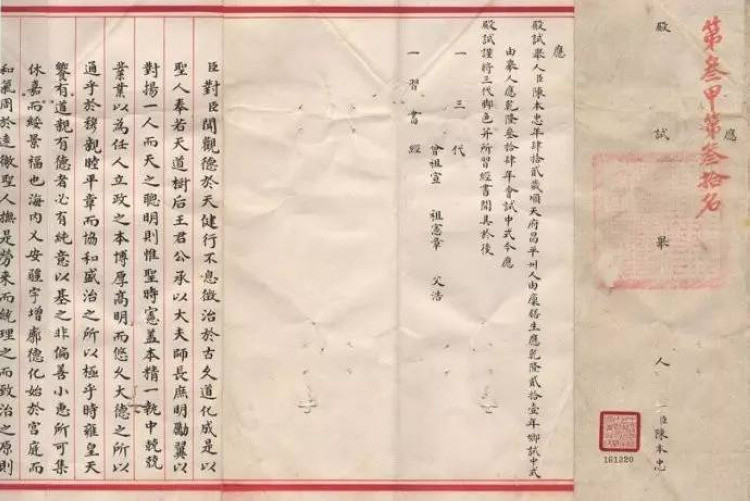 第叁甲第叁拾名
應
殿試舉人臣陳本忠
161320
應
殿試舉人臣陳本忠年肆拾貳歲順天府昌平州人由廩膳生應乾隆貳拾壹年鄉試中式
由舉人應乾隆叁拾肆年會試中式今應
殿試謹將三代腳色并所習經書開具於後
一三代
曾祖宣 祖憲章 父浩
一習書經
臣對臣聞觀德於天健行不息徵治於古久道化成是以
聖人奉若天道樹后王君公承以大夫師長庶明勵翼以
對揚一人而天之聰明則惟聖時憲蓋本精一執中兢兢
業業以為任人立政之本博厚高明而悠久大德之所以
通乎於穆親睦平章而協和盛治之所以極乎時雍皇天
饗有道親有德者必有純意以基之非偏善小惠所可集
休嘉而綏景福也海內乂安疆宇增廓德化始於宮庭而
和氣周於遠徼聖人撫是勞來而統理之而致治之原則